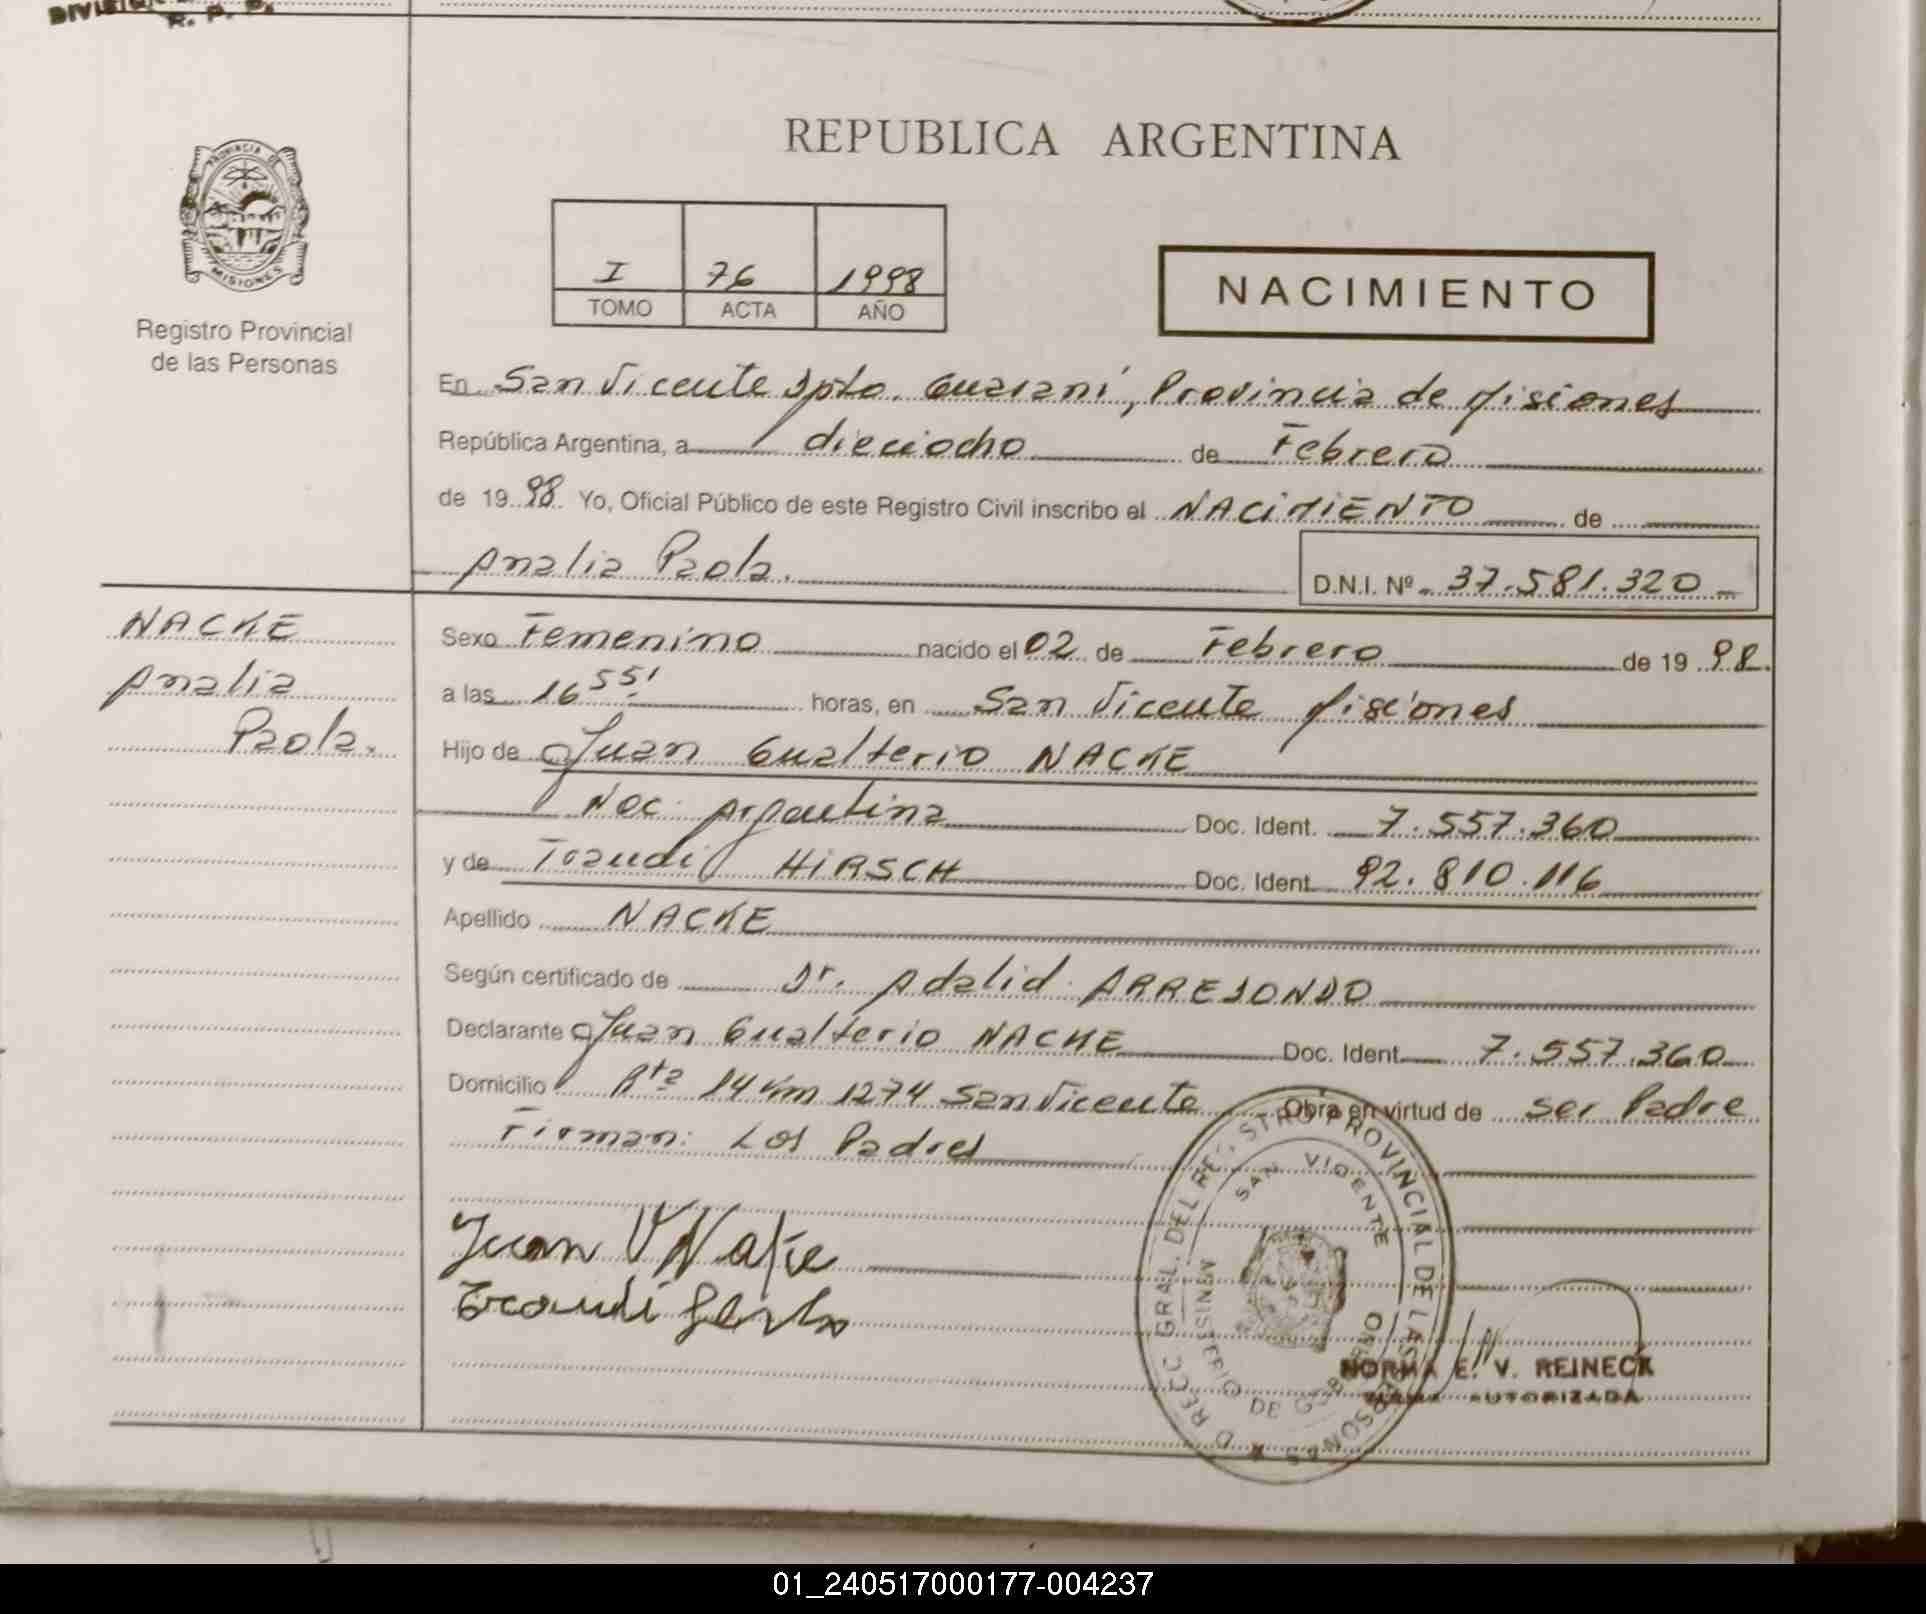 DIVISION
R. P. P.
REPUBLICA ARGENTINA
PROVINCIA DE MISIONES
Registro Provincial
de las Personas
I 76 1998
TOMO ACTA AÑO
NACIMIENTO
En San Vicente Dpto. Guaraní, Provincia de Misiones
República Argentina, a dieciocho de Febrero
de 1998. Yo, Oficial Público de este Registro Civil inscribo el NACIMIENTO de
Analia Paola.
D.N.I. Nº 37.581.320
NACKE
Analia
Paola.
Sexo Femenino nacido el 02 de Febrero de 1998.
a las 16 55' horas, en San Vicente Misiones
Hijo de Juan Gualterio NACKE
Nac. Argentina Doc. Ident. 7.557.360
y de Traudi HIRSCH Doc. Ident. 92.810.116
Apellido NACKE
Según certificado de Dr. Adalid ARREDONDO
Declarante Juan Gualterio NACKE Doc. Ident. 7.557.360
Domicilio Rta 14 Km 1274 San Vicente Obra en virtud de ser Padre
Firman: Los Padres
Juan
Traudi
D RECC GRAL DEL REGISTRO PROVINCIAL DE LAS PERSONAS
SAN VICENTE
MINISTERIO DE GOBIERNO
NORMA E. V. REINECK
FIRMA AUTORIZADA
01_240517000177-004237